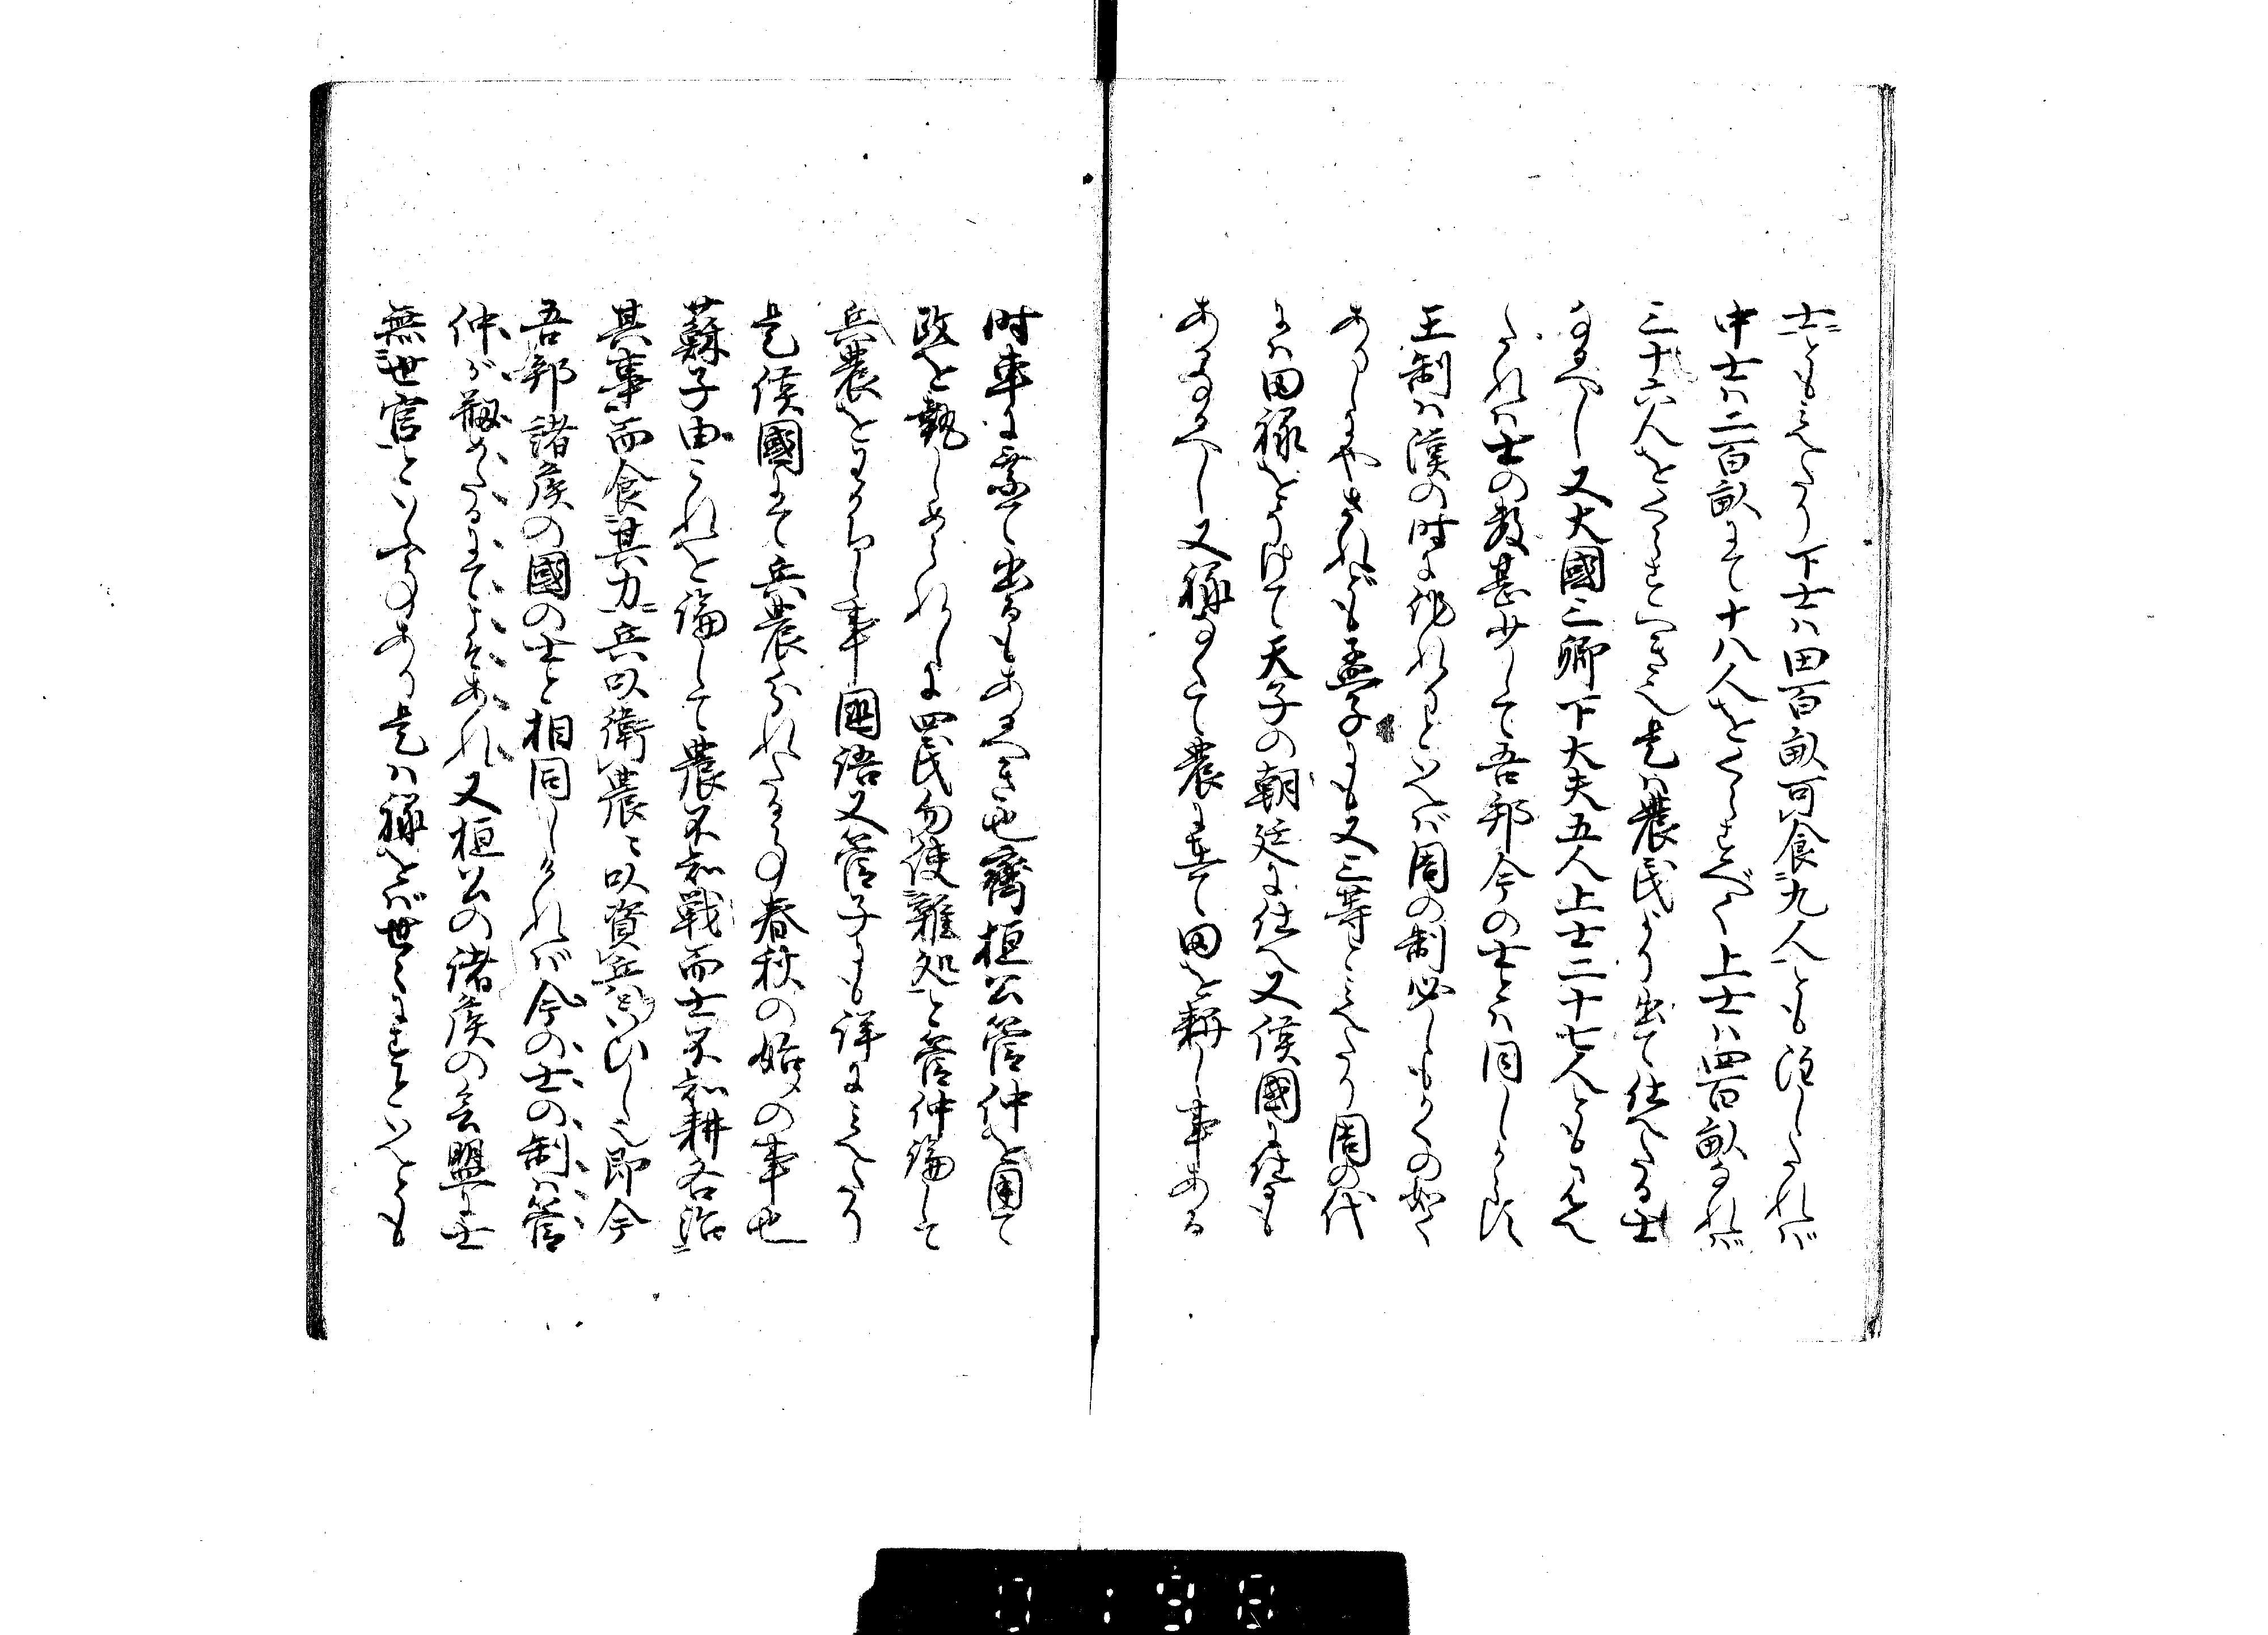 士ともみへたり下士ハ田百畝可食九人とも注したれバ
中士ハ二百畝にて十八人をくらすべく上士ハ四百畝なれバ
三十六人をくらすへき也是ハ農民より出て仕へたる士
なるへし又大國三卿下大夫五人上士二十七人ともみへ
たれハ士の数甚少しにて吾邦今の士とハ同しからす
王制ハ漢の時に作れりといへバ周の制必しもかくの如く
ありしにやされども孟子にも又三等とみへたり周の代
にハ田禄をうけて天子の朝廷に仕へ又侯國に仕るも
あるなるへし又禄なくて農にて田を耕し事ある
時車に乗て出るもあるへき也齊桓公管仲を用て
政を執しめられしに四民勿使雜処と管仲論して
兵農をわかちし事國語又管子にも詳にみへたり
是侯國にて兵農分れたる事春秋の始の事也
蘇子由これを論して農不知戰而士不知耕各治
其事而食其力兵以衛農々以資兵といひし也即今
吾邦諸侯の國の士と相同しけれバ今の士の制ハ管
仲が 又桓公の諸侯の会盟に士
無世官といふ事あり是ハ禄をバ世々にすといへとも